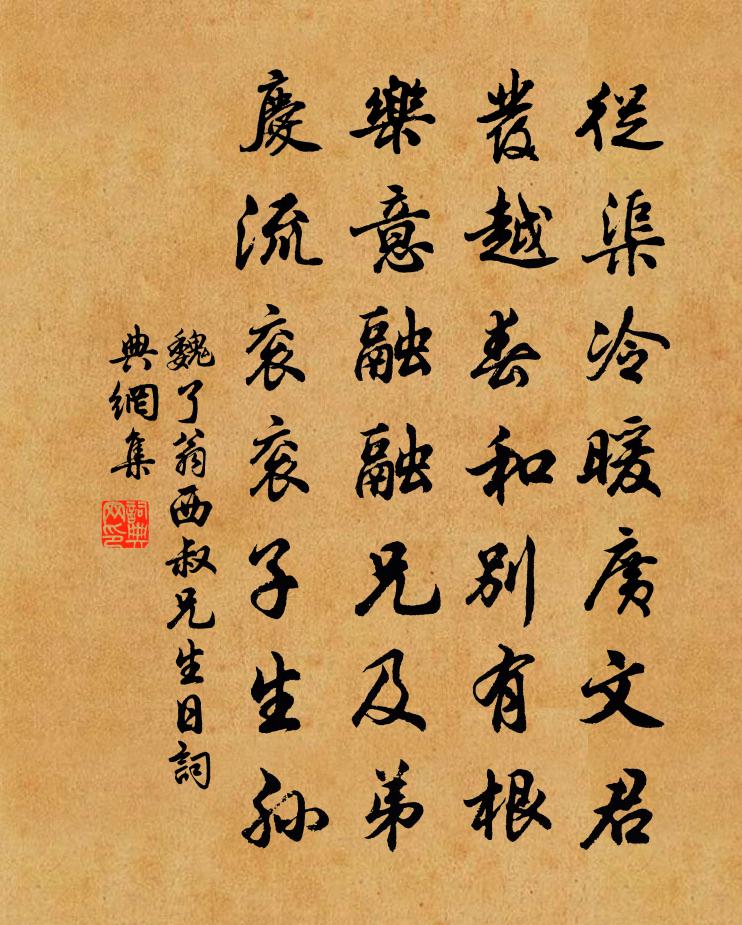 從渠冷暖廣文君
發越春和別有根
樂意融融兄及弟
慶流衮衮子生孫
魏了翁西叔兄生日詞
典網集
詞典
网印